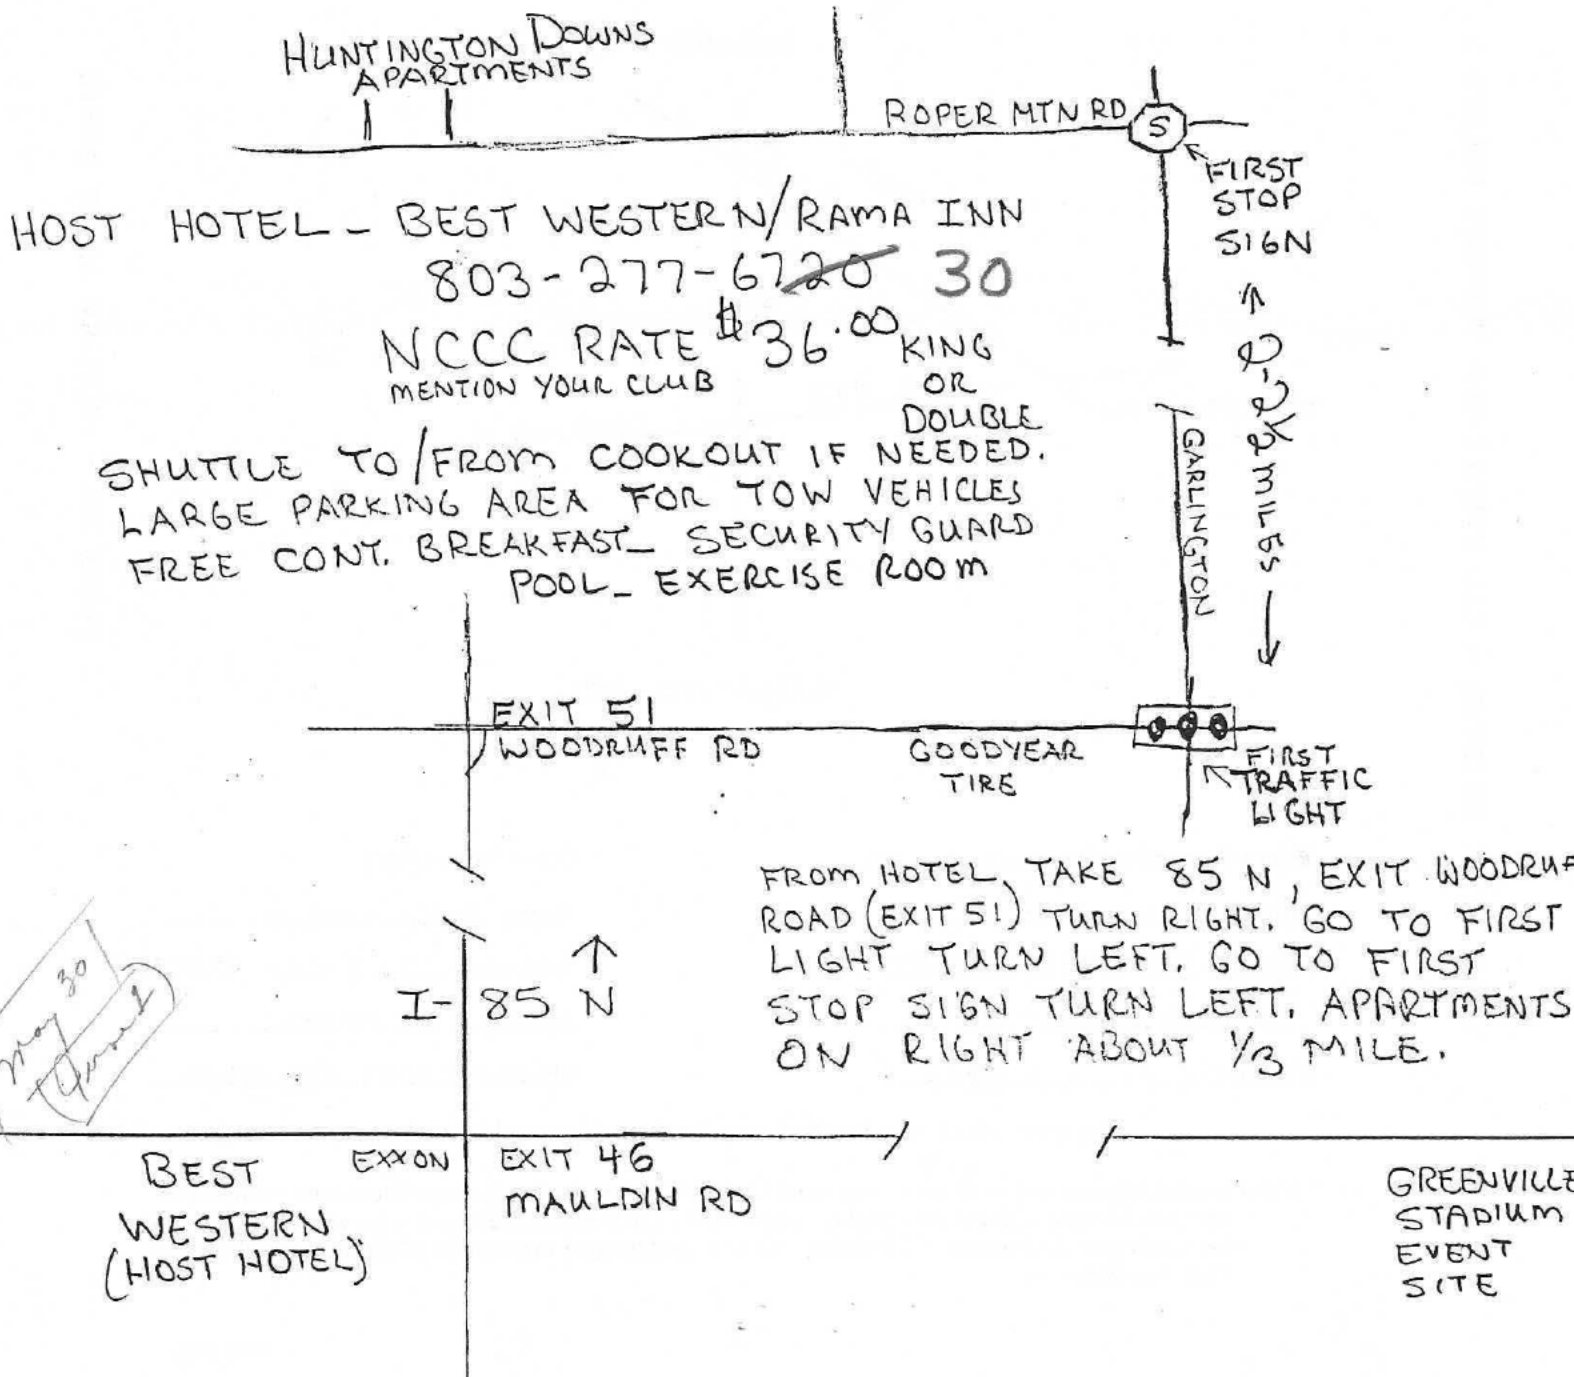 HUNTINGTON DOWNS
APARTMENTS
ROPER MTN RD
S
FIRST
STOP
SIGN
HOST HOTEL - BEST WESTERN/RAMA INN
803-277-6720 30
NCCC RATE $36.00 KING
MENTION YOUR CLUB
OR
DOUBLE
2-2½ MILES
GARLINGTON
SHUTTLE TO/FROM COOKOUT IF NEEDED.
LARGE PARKING AREA FOR TOW VEHICLES
FREE CONT. BREAKFAST - SECURITY GUARD
POOL - EXERCISE ROOM
EXIT 51
WOODRUFF RD
GOODYEAR
TIRE
FIRST
TRAFFIC
LIGHT
FROM HOTEL, TAKE 85 N, EXIT WOODRUF
ROAD (EXIT 51) TURN RIGHT. GO TO FIRST
LIGHT TURN LEFT. GO TO FIRST
STOP SIGN TURN LEFT. APARTMENTS
ON RIGHT ABOUT 1/3 MILE.
I-85 N
May 30
BEST
WESTERN
(HOST HOTEL)
EXXON
EXIT 46
MAULDIN RD
GREENVILLE
STADIUM
EVENT
SITE